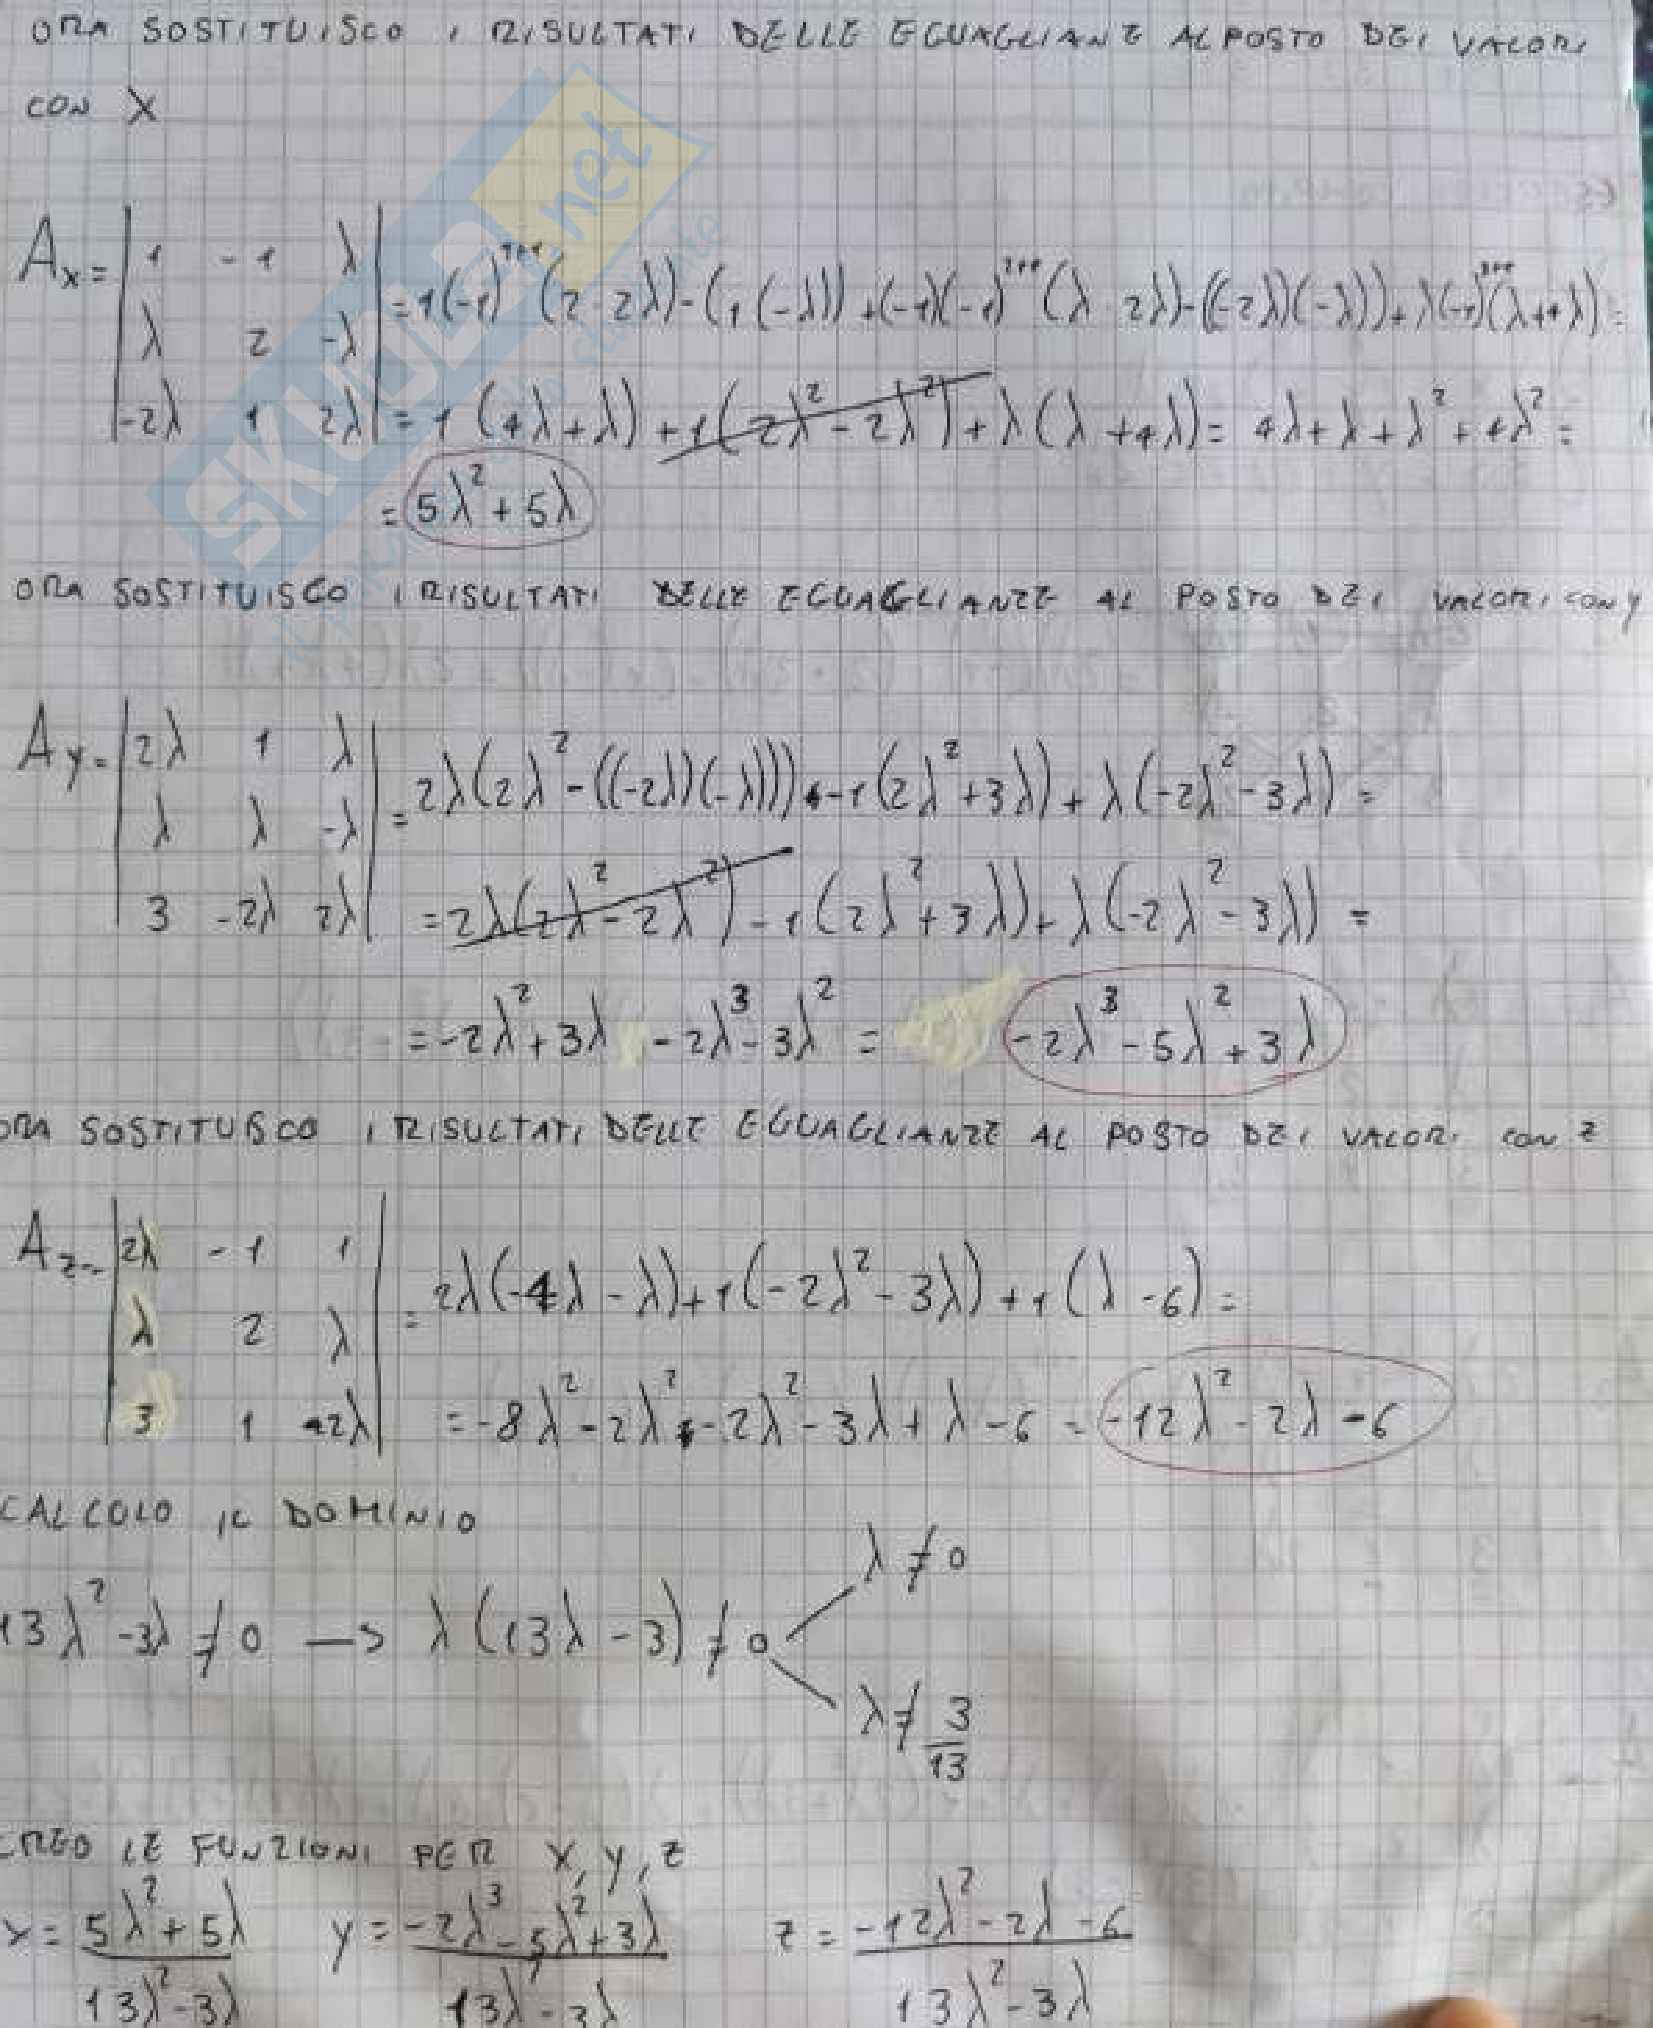 ORA SOSTITUISCO I RISULTATI DELLE EGUAGLIANZE AL POSTO DEI VALORI
CON X
A_x = | 1 -1 λ | = 1(-1)¹⁺¹(2·2λ)-(1(-λ))+(-1)(-1) (λ·2λ)-((-2λ)(-λ))+λ(-1) (λ+4λ)=
| λ 2 -λ |
| -2λ 1 2λ | = 1(4λ+λ)+1(2λ²-2λ²)+λ(λ+4λ)= 4λ+λ+λ²+4λ²=
= 5λ²+5λ
ORA SOSTITUISCO I RISULTATI DELLE EGUAGLIANZE AL POSTO DEI VALORI CON Y
A_y = | 2λ 1 λ | = 2λ(2λ²-((-2λ)(-λ)))-1(2λ²+3λ)+λ(-2λ²-3λ)=
| λ λ -λ |
| 3 -2λ 2λ | = 2λ(2λ²-2λ²)-1(2λ²+3λ)+λ(-2λ²-3λ)=
= -2λ²+3λ -2λ³-3λ² = -2λ³-5λ²+3λ
ORA SOSTITUISCO I RISULTATI DELLE EGUAGLIANZE AL POSTO DEI VALORI CON Z
A_z = | 2λ -1 1 | = 2λ(-4λ-λ)+1(-2λ²-3λ)+1(λ-6)=
| λ 2 λ |
| 3 1 -2λ | = -8λ²-2λ²-2λ²-3λ+λ-6 = -12λ²-2λ-6
CALCOLO IL DOMINIO
λ≠0
13λ²-3λ≠0 → λ(13λ-3)≠0
λ≠3/13
CREO LE FUNZIONI PER X, Y, Z
x = 5λ²+5λ / 13λ²-3λ y = -2λ³-5λ²+3λ / 13λ²-3λ z = -12λ²-2λ-6 / 13λ²-3λ
SKUOLA.net